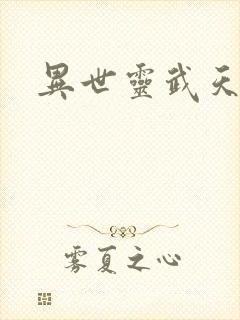 異世靈武天
雾夏之心